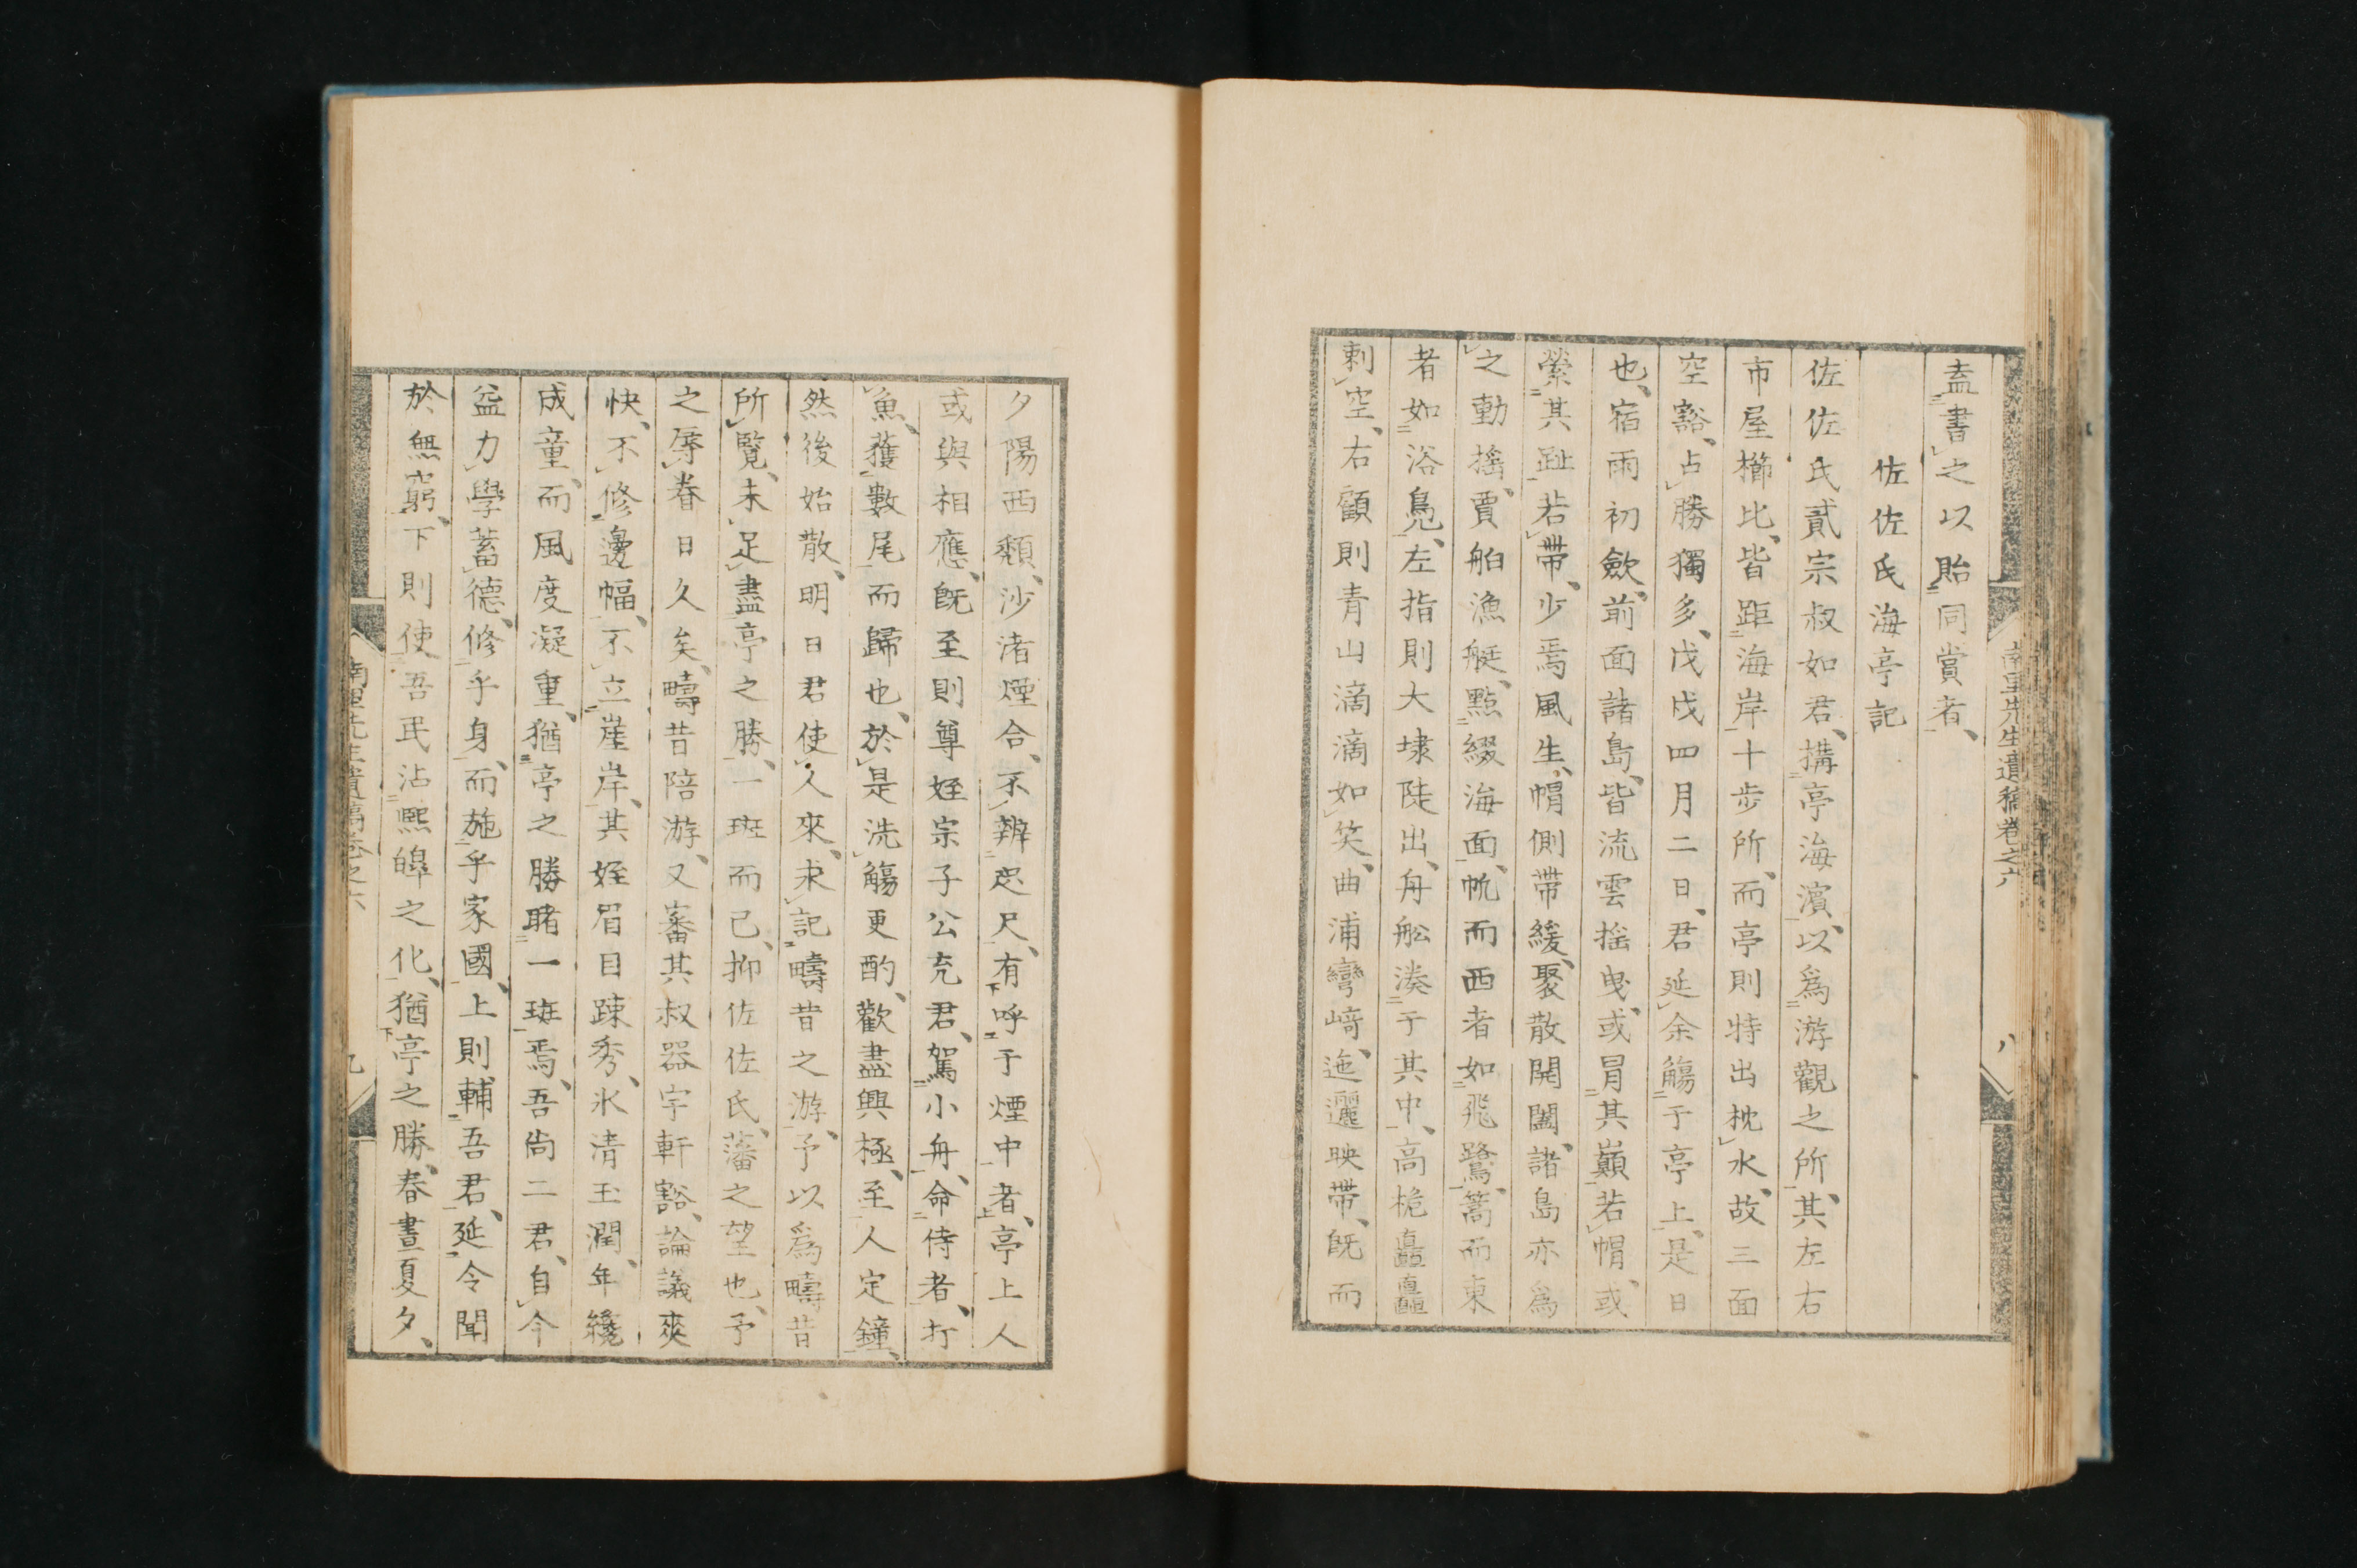 盍書之以貽同賞者、
佐佐氏海亭記
佐佐氏貳宗叔如君、搆亭海濵、以爲游觀之所、其左右
市屋櫛比、皆距海岸十步所、而亭則特出枕水、故三面
空豁、占勝獨多、戊戌四月二日、君延余觴于亭上、是日
也、宿雨初歛、前面諸島、皆流雲揺曳、或冒其巔若帽、或
縈其趾若帶、少焉風生、帽側帶緩、聚散開闔、諸島亦爲
之動搖、賈舶漁艇、點綴海面、帆而西者如飛鷺、篙而東
者如浴鳧、左指則大埭陡出、舟舩湊于其中、高桅矗矗
刺空、右顧則青山滴滴如笑、曲浦彎﨑、迤邐映帶、既而
南里先生遺稿卷之六
八
夕陽西頽、沙渚煙合、不辨咫尺、有呼于煙中者、亭上人
或與相應、既至則尊姪宗子公充君、駕小舟、命侍者、打
魚、獲數尾而歸也、於是洗觴更酌、歡盡興極、至人定鐘、
然後始散、明日君使人來、求記疇昔之游、予以爲疇昔
所覽、未足盡亭之勝、一斑而已、抑佐佐氏、藩之望也、予
之辱眷日久矣、疇昔陪游、又審其叔器宇軒豁、論議爽
快、不修邊幅、不立崖岸、其姪眉目踈秀、氷清玉潤、年纔
成童、而風度凝重、猶亭之勝睹一斑焉、吾尙二君、自今
益力學蓄德、修乎身、而施乎家國、上則輔吾君、延令聞
於無窮、下則使吾民沾熙皡之化、猶亭之勝、春晝夏夕、
南里先生遺稿卷之六
九